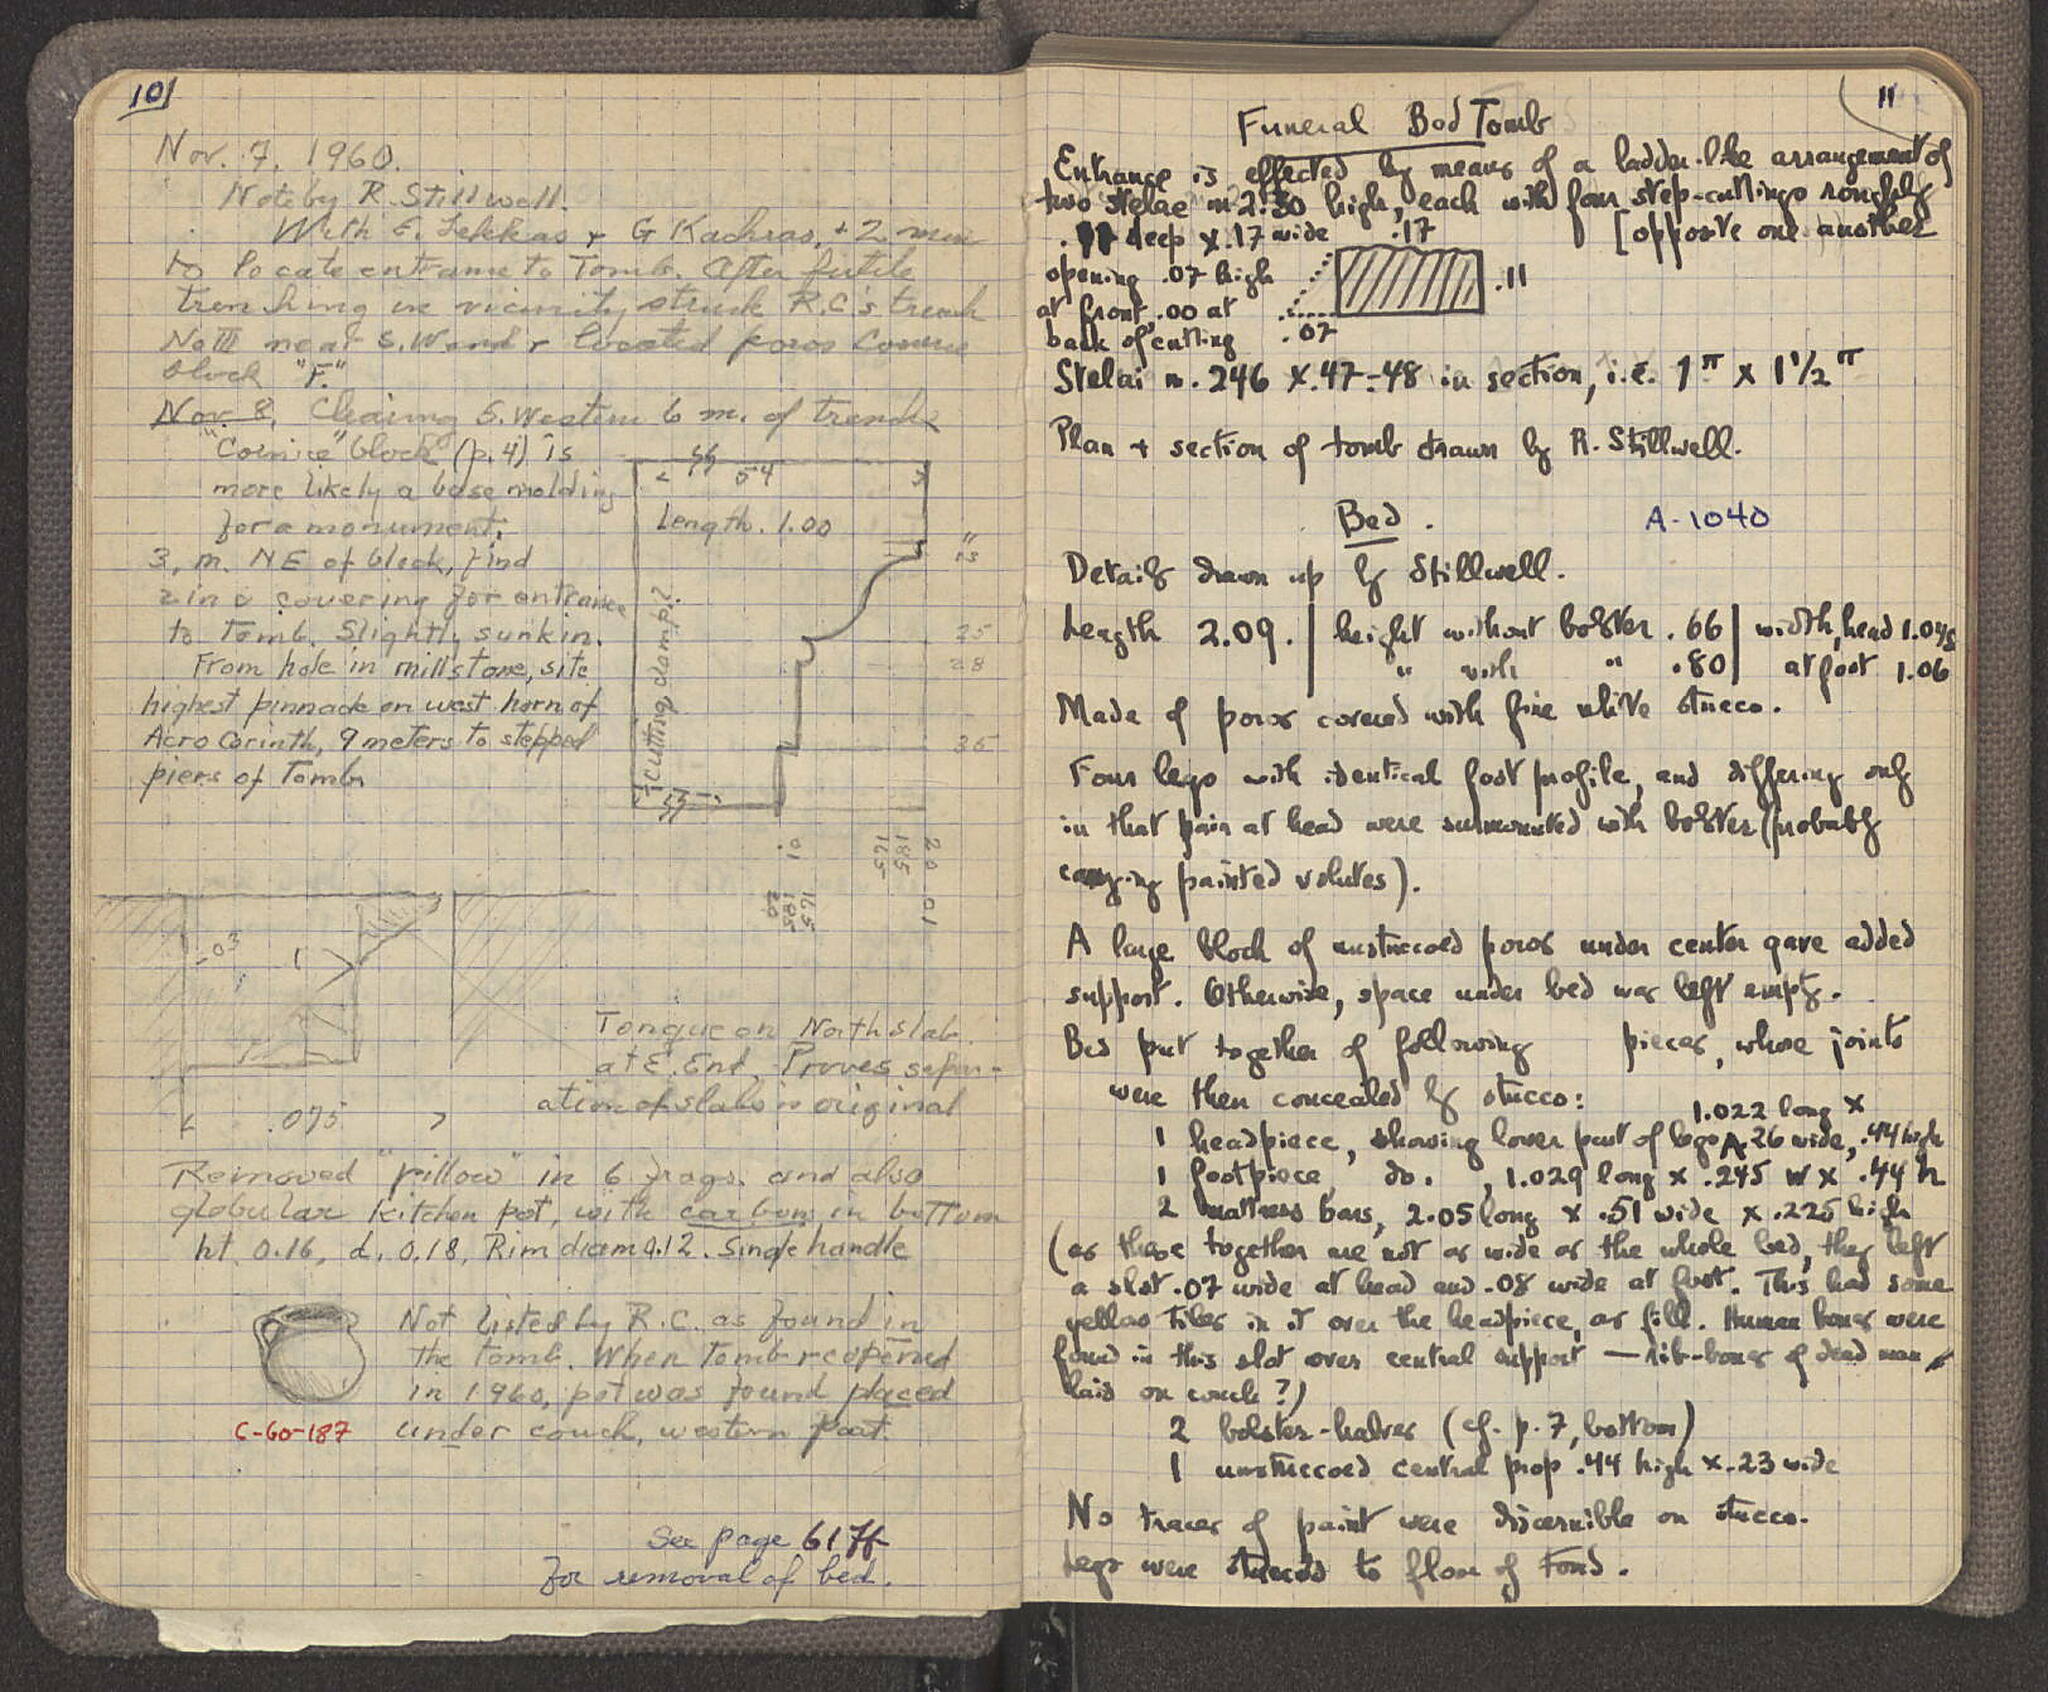 10
Nov. 7. 1960.
Note by R. Stillwell.
With E. Lekkas + G Kachros, + 2 men
to locate entrance to Tomb. After futile
trenching in vicinity struck R.C's trench
No III near S.W end + located poros
block "F."
Nov. 8. Clearing S. Western 6 m. of trench
"Cornice" block (p. 4) is
more likely a base molding
for a monument.
3, m. NE of block, find
covering for entrance
to Tomb. Slightly sunk in.
From hole in millstone, site
highest pinnacle on west horn of
Acro Corinth, 9 meters to stepped
piers of Tomb
54
Length. 1.00
cutting damp?
25
28
35
10
175
185
20
10
20
185
175
.03
.075
Tongue on North slab
at E. End. Proves separ-
ation of slabs is original
Removed "pillow" in 6 frags. and also
globular kitchen pot, with carbon in bottom
ht. 0.16, d. 0.18, Rim diam 0.12. Single handle
Not listed by R.C. as found in
the tomb. When Tomb reopened
in 1960, pot was found placed
under couch, western part.
C-60-187
See page 61 ff
for removal of bed.
11
Funeral Bed Tomb
Entrance is effected by means of a ladder-like arrangement of
two stelae m 2.30 high, each with four step-cuttings roughly
.11 deep x .17 wide [opposite one another
opening .07 high
at front, .00 at
back of cutting
.17
.11
.07
Stelai m. .246 x .47-.48 in section, i.e. 1π x 1 1/2 π
Plan + section of tomb drawn by R. Stillwell.
Bed. A-1040
Details drawn up by Stillwell.
Length 2.09. | height without bolster .66 | width, head 1.048
" with " .80 | at foot 1.06
Made of poros covered with fine white stucco.
Four legs with identical foot profile, and differing only
in that pair at head were surmounted with bolster (probably
carrying painted volutes).
A large block of unstuccoed poros under center gave added
support. Otherwise, space under bed was left empty.
Bed put together of following pieces, whose joints
were then concealed by stucco:
1.022 long x
1 headpiece, showing lower part of legs .26 wide, .44 high
1 footpiece, do. , 1.029 long x .245 w x .44 h
2 mattress bars, 2.05 long x .51 wide x .225 high
(as these together are not as wide as the whole bed, they left
a slot .07 wide at head and .08 wide at foot. This had some
yellow tiles in it over the headpiece, as fill. Human bones were
found in this slot over central support — rib-bones of dead man
laid on couch?)
2 bolster-halves (cf. p. 7, bottom)
1 unstuccoed central prop .44 high x .23 wide
No traces of paint were discernible on stucco.
Legs were stuccoed to floor of tomb.